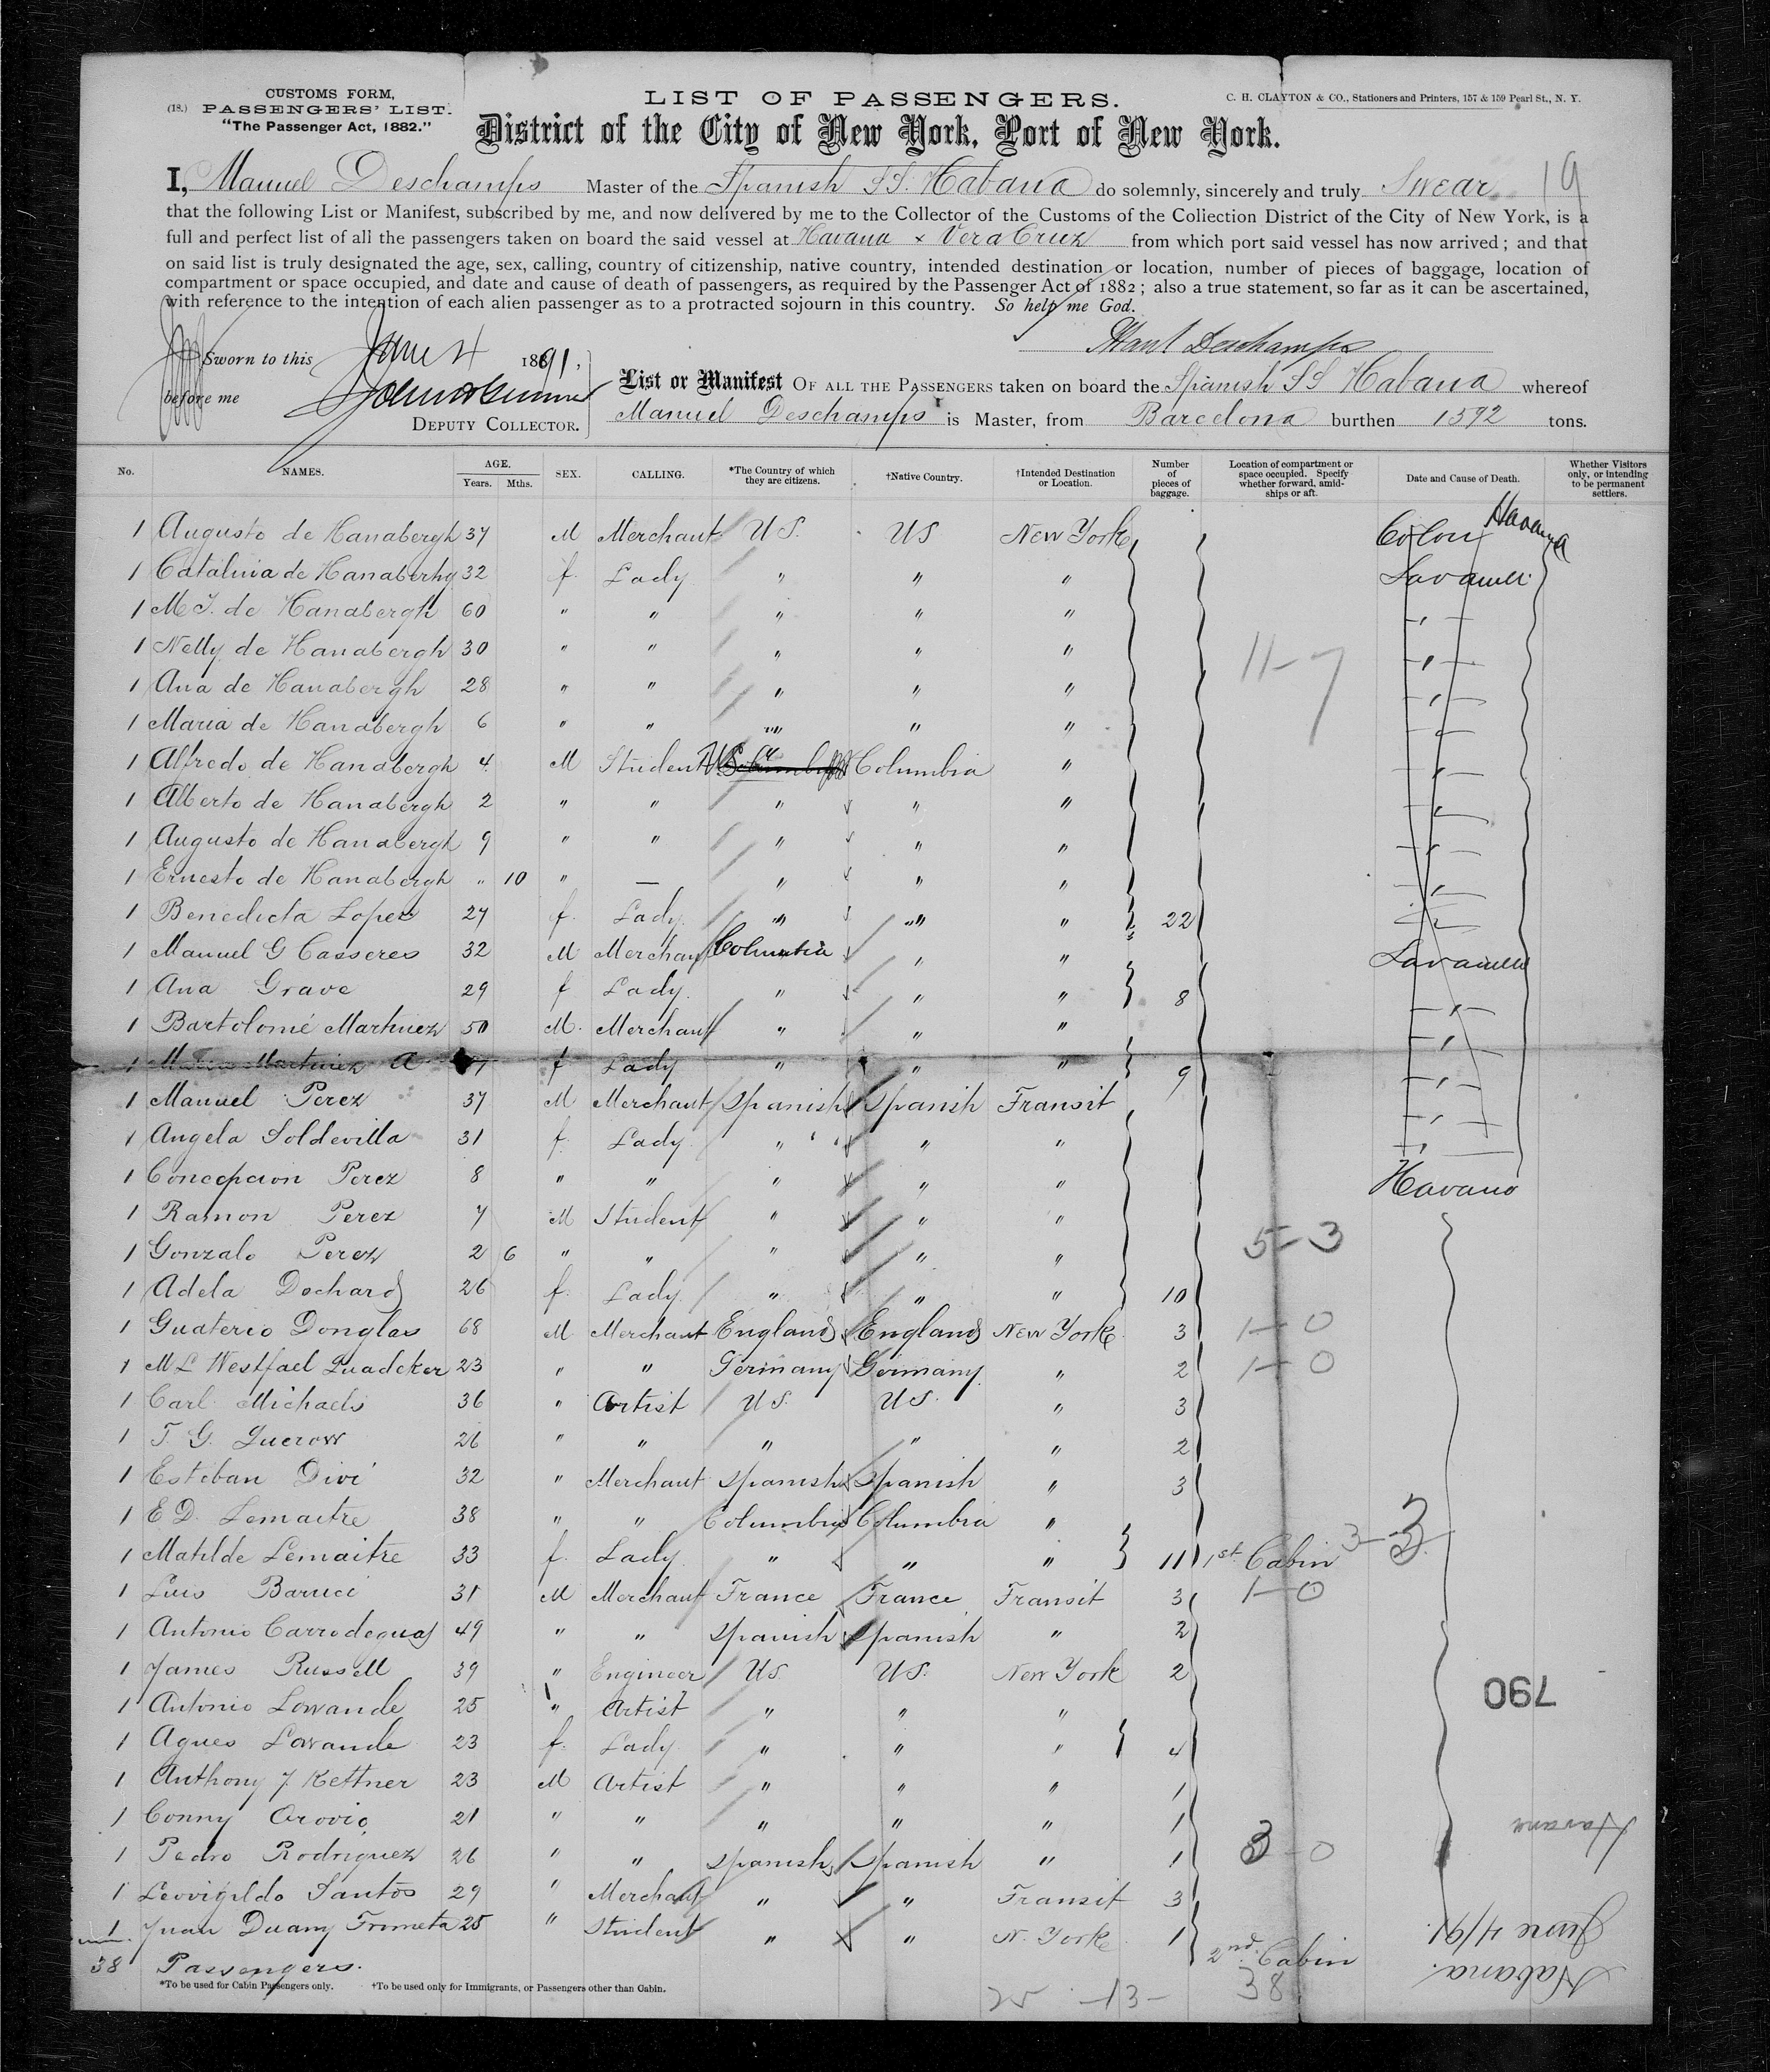 CUSTOMS FORM,
(18.) PASSENGERS' LIST.
"The Passenger Act, 1882."
LIST OF PASSENGERS.
C. H. CLAYTON & CO., Stationers and Printers, 157 & 159 Pearl St., N. Y.
District of the City of New York, Port of New York.
19
I, Manuel Deschamps Master of the Spanish SS. Habana do solemnly, sincerely and truly Swear
that the following List or Manifest, subscribed by me, and now delivered by me to the Collector of the Customs of the Collection District of the City of New York, is a
full and perfect list of all the passengers taken on board the said vessel at Havana & Vera Cruz from which port said vessel has now arrived; and that
on said list is truly designated the age, sex, calling, country of citizenship, native country, intended destination or location, number of pieces of baggage, location of
compartment or space occupied, and date and cause of death of passengers, as required by the Passenger Act of 1882; also a true statement, so far as it can be ascertained,
with reference to the intention of each alien passenger as to a protracted sojourn in this country. So help me God.
Manl Deschamps
Sworn to this June 4 1891,
before me
DEPUTY COLLECTOR.
List or Manifest OF ALL THE PASSENGERS taken on board the Spanish SS Habana whereof
Manuel Deschamps is Master, from Barcelona burthen 1592 tons.
No. NAMES. AGE. Years. Mths. SEX. CALLING. *The Country of which they are citizens. †Native Country. †Intended Destination or Location. Number of pieces of baggage. Location of compartment or space occupied. Specify whether forward, amidships or aft. Date and Cause of Death. Whether Visitors only, or intending to be permanent settlers.
1 Augusto de Hanabergh 37 M Merchant U S. U S New York Colon Havana
1 Catalina de Hanaberhg 32 f. Lady " " "
1 M J. de Hanabergh 60 " " " " "
1 Nelly de Hanabergh 30 " " " " "
1 Ana de Hanabergh 28 " " " " " 11-7
1 Maria de Hanabergh 6 " " " " "
1 Alfredo de Hanabergh 4 M Student Columbia "
1 Alberto de Hanabergh 2 " " " " "
1 Augusto de Hanabergh 9 " " " " "
1 Ernesto de Hanabergh " 10 " — " " "
1 Benedicta Lopez 27 f. Lady " " " 22
1 Manuel G Casseres 32 M Merchant Columbia " "
1 Ana Grave 29 f Lady " " " 8
1 Bartolomé Martinez 50 M. Merchant " " "
1 Martinez A f Lady " " " 9
1 Manuel Perez 37 M Merchant Spanish Spanish Transit
1 Angela Soldevilla 31 f. Lady " " "
1 Concepcion Perez 8 " " " " " Havana
1 Ramon Perez 7 M Student " " "
1 Gonzalo Perez 2 6 " " " " " 5-3
1 Adela Dechard 26 f. Lady " " " 10
1 Guaterio Douglas 68 M Merchant England England New York 3 1-0
1 M L Westfael Quadeker 23 " " Germany Germany " 2 1-0
1 Carl Michaels 36 " Artist U S. U S. " 3
1 T. G. 26 " " " " " 2
1 Esteban Divi 32 " Merchant Spanish Spanish " 3
1 E D. Lemaitre 38 " " Columbia Columbia "
1 Matilde Lemaitre 33 f. Lady " " " 11 1st Cabin 3-3
1 Luis Baruci 31 M Merchant France France Transit 3 1-0
1 Antonio Carrodeguas 49 " " Spanish Spanish " 2
1 James Russell 39 " Engineer US. US. New York 2
790
1 Antonio Lowande 25 " Artist " " "
1 Agnes Lowande 23 f. Lady " " " 4
1 Anthony J Kettner 23 M Artist " " " 1
1 Conny Orovio 21 " " " " " 1
Havana
1 Pedro Rodriguez 26 " " Spanish Spanish " 1 3-0
1 Leovigildo Santos 29 " Merchant " " Transit 3
1 Juan Duany Frometa 25 " Student " " N. York 1 2nd. Cabin
38 Passengers.
38
25 -13-
Habana.
June 4/91.
*To be used for Cabin Passengers only. †To be used only for Immigrants, or Passengers other than Cabin.